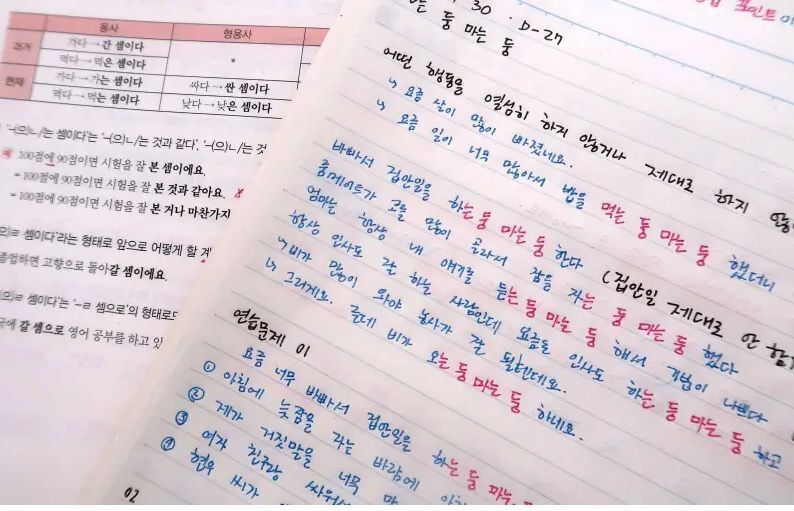 동사
형용사
과거
가다 → 간 셈이다
먹다 → 먹은 셈이다
*
현재
가다 → 가는 셈이다
먹다 → 먹는 셈이다
싸다 → 싼 셈이다
낮다 → 낮은 셈이다
'-(으)ㄴ/는 셈이다'는 '-(으)ㄴ/는 것과 같다', '-(으)ㄴ/는 것
100점에 90점이면 시험을 잘 본 셈이에요.
= 100점에 90점이면 시험을 잘 본 것과 같아요.
= 100점에 90점이면 시험을 잘 본 거나 마찬가지
셈이다'라는 형태로 앞으로 어떻게 할 거
졸업하면 고향으로 돌아갈 셈이에요.
셈이다'는 '-ㄹ 셈으로'의 형태로
갈 셈으로 영어 공부를 하고 있
포인트
30 · D-27
는 둥 마는 둥
어떤 행동을 열심히 하지 않거나 제대로 하지 않
↳ 요즘 살이 많이 빠졌네요.
↳ 요즘 일이 너무 많아서 밥을 먹는 둥 마는 둥 했더니
바빠서 집안일을 하는 둥 마는 둥 한다 (집안일 제대로 안 함)
룸메이트가 코를 많이 골아서 잠을 자는 둥 마는 둥 했다
엄마는 항상 내 얘기를 듣는 둥 마는 둥 해서 기분이 나쁘다
항상 인사도 잘 하는 사람인데 요즘은 인사도 하는 둥 마는 둥 하고
↳ 비가 많이 와야 농사가 잘 될텐데요.
↳ 그러게요. 근데 비가 오는 둥 마는 둥 하네요.
연습문제 01
요즘 너무 바빠서 집안일을 하는 둥 마는
① 아침에 늦잠을 자는 바람에
② 제가 거짓말을 너무
③ 여자 친구랑 싸워서
④ 현우 씨가
02